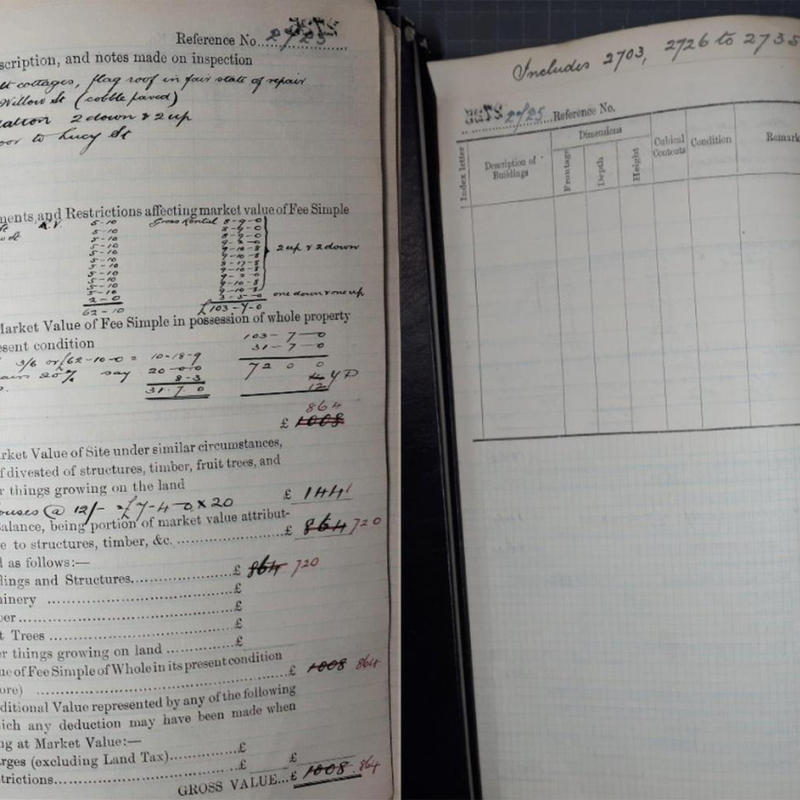 Reference No. 2725
scription, and notes made on inspection
cottages, flag roof in fair state of repair
Willow St (cobble paved)
2 down & 2 up
to Lucy St
ments and Restrictions affecting market value of Fee Simple
R.V. 5-10 Gross Rental 8-9-0
5-10
5-10
5-10
5-10 2 up & 2 down
5-10
5-10
5-10
5-10
5-10
5-10
2-0 3-5-0 one down & one up
62-10 £103-7-0
Market Value of Fee Simple in possession of whole property
esent condition
103-7-0
31-7-0
3/6 62-10-0 = 10-18-9
20% say 20-0-0
8-3
31.7.0
72 0 0
12 YP
864
£ 1008
rket Value of Site under similar circumstances,
f divested of structures, timber, fruit trees, and
r things growing on the land
£ 144
ouses @ 12/- = £7-4-0 x 20
alance, being portion of market value attribut-
e to structures, timber, &c. £ 864 720
d as follows:—
dings and Structures £ 864 720
hinery £
ber £
t Trees £
er things growing on land £
ue of Fee Simple of Whole in its present condition
ore) £ 1008 864
ditional Value represented by any of the following
ich any deduction may have been made when
ng at Market Value:—
rges (excluding Land Tax) £
trictions £ £
GROSS VALUE...£ 1008 864
Includes 2703, 2726 to 2735
2725 Reference No.
Index letter
Description of Buildings
Dimensions
Frontage
Depth
Height
Cubical Contents
Condition
Remark